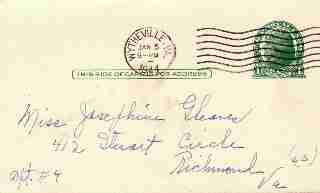 WYTHEVILLE, VA.
JAN 5
THIS SIDE OF CARD IS FOR ADDRESS
Miss Josephine Gleaves
412 Stuart Circle
Richmond
Apt. #9
Va